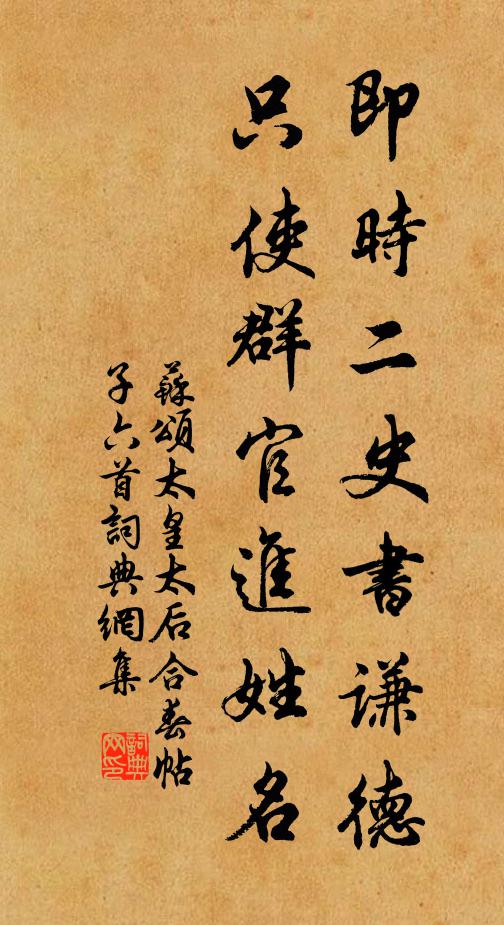 即時二史書謙德
只使群官進姓名
蘇頌太皇太后合春帖
子六首詞典網集
詞典
网印